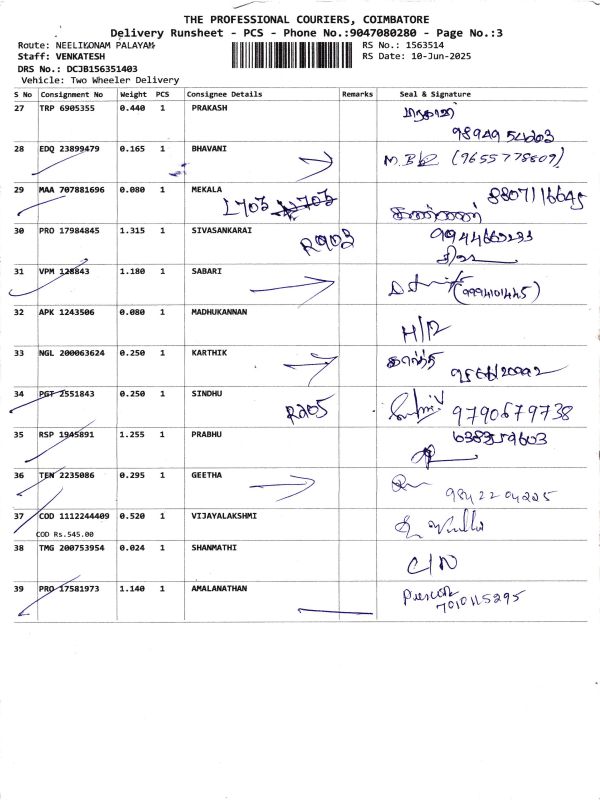 THE PROFESSIONAL COURIERS, COIMBATORE
Delivery Runsheet - PCS - Phone No.:9047080280 - Page No.:3
Route: NEELIKONAM PALAYAM RS No.: 1563514
Staff: VENKATESH RS Date: 10-Jun-2025
DRS No.: DCJB156351403
Vehicle: Two Wheeler Delivery
S No Consignment No Weight PCS Consignee Details Remarks Seal & Signature
27 TRP 6905355 0.440 1 PRAKASH
28 EDQ 23899479 0.165 1 BHAVANI
(9655778807)
29 MAA 707881696 0.080 1 MEKALA
L703
கண்ணன்
30 PRO 17984845 1.315 1 SIVASANKARAI
R902
31 VPM 128843 1.180 1 SABARI
(9994101445)
32 APK 1243506 0.080 1 MADHUKANNAN
H/R
33 NGL 200063624 0.250 1 KARTHIK
34 PGT 2551843 0.250 1 SINDHU
R205 9790679738
35 RSP 1945891 1.255 1 PRABHU
36 TEN 2235086 0.295 1 GEETHA
9842204225
37 COD 1112244409 0.520 1 VIJAYALAKSHMI
COD Rs.545.00
38 TMG 200753954 0.024 1 SHANMATHI
C/N
39 PRO 17581973 1.140 1 AMALANATHAN
7010115295